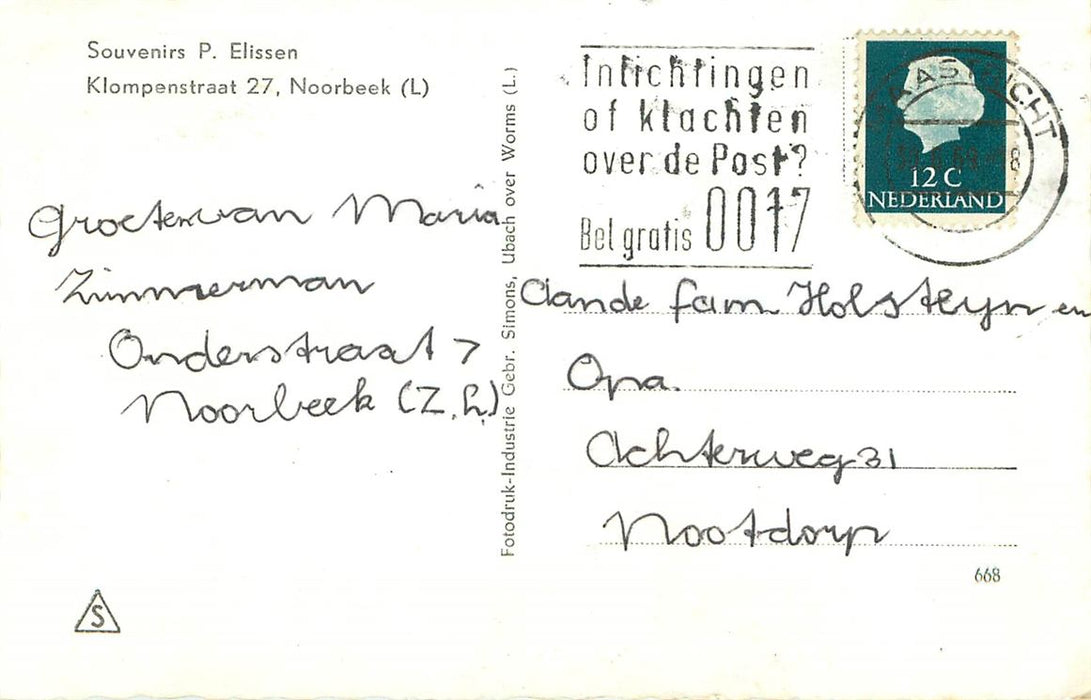 Souvenirs P. Elissen
Klompenstraat 27, Noorbeek (L)
Groeten van Maria
Zimmerman
Onderstraat 7
Noorbeek (Z.L)
S
Fotodruk-Industrie Gebr. Simons, Ubach over Worms (L.)
Inlichtingen
of klachten
over de Post?
Bel gratis 0017
MAASTRICHT
12 C
NEDERLAND
Aan de fam Holsteyn en
Opa.
Achterweg 31
Nootdorp
668